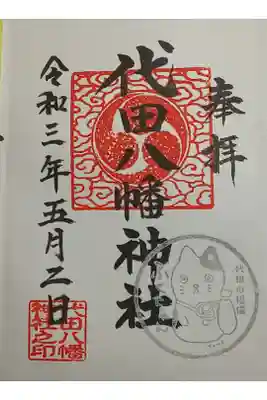 奉拝
代田八幡神社
令和三年五月二日
代田八幡
神社之印